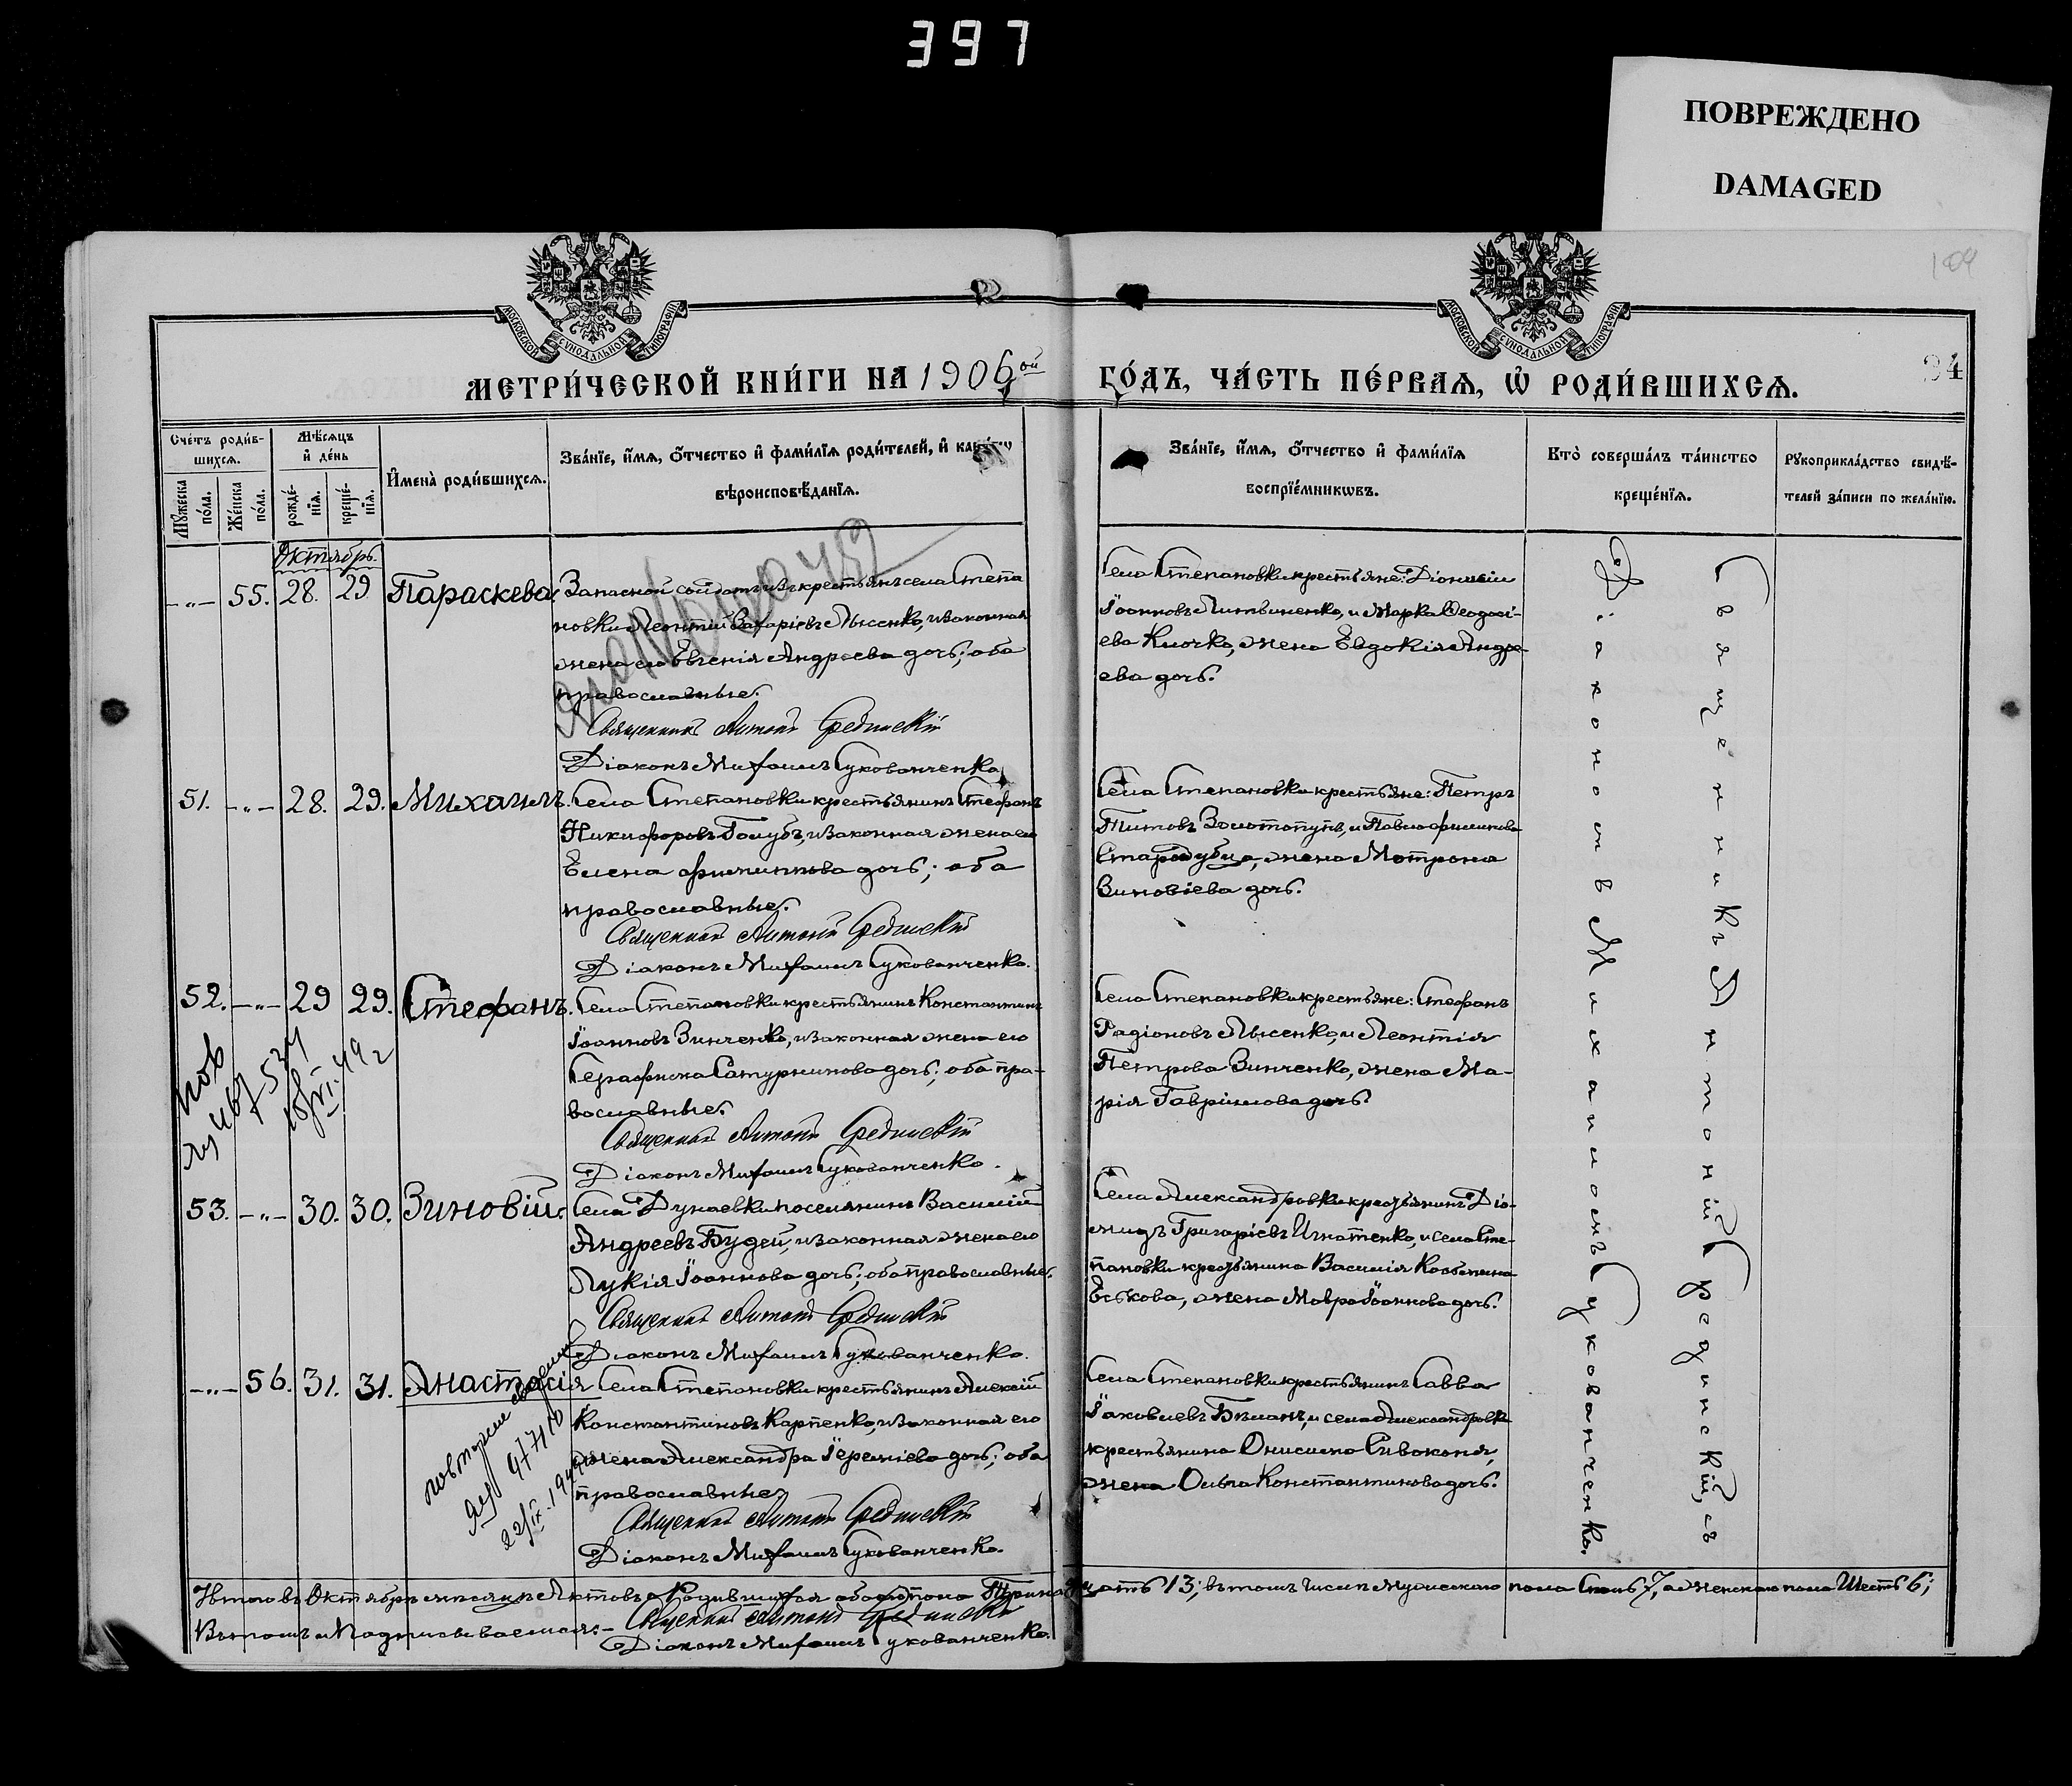 397
ПОВРЕЖДЕНО
DAMAGED
109
34
МОСКОВСКОЙ СУНОДАЛЬНОЙ ТИПОГРАФІИ
МОСКОВСКОЙ СУНОДАЛЬНОЙ ТИПОГРАФІИ
МЕТРИ́ЧЕСКОЙ КНИ́ГИ НА 1906ой ГО́ДЪ, ЧА́СТЬ ПЕ́РВАѦ, Ѡ҆ РОДИ́ВШИХСѦ.
Сче́тъ роди́в-
шихсѧ.
Мѣ́сѧцъ
и҆ де́нь
Мꙋ́жеска
по́ла.
Же́нска
по́ла.
рожде́-
нїѧ.
креще́-
нїѧ.
И҆мена̀ роди́вшихсѧ.
Зва́нїе, и҆́мѧ, ѻ҆́тчество и҆ фами́лїѧ роди́телей, и҆
вѣроисповѣ́данїѧ.
Зва́нїе, и҆́мѧ, ѻ҆́тчество и҆ фами́лїѧ
воспрїе́мникѡвъ.
Кто̀ соверша́лъ та́инство
креще́нїѧ.
Рꙋкоприкла́дство свидѣ́-
телей за́писи по жела́нїю.
Октябрь.
-„- 55. 28. 29 Параскева.
Запасной солдатъ изъ крестьянъ села Степа
новки Леонтій Захаріевъ Лысенко, и законная
жена его Евгенія Андреева дочь; оба
православные.
Священникъ Антоній Срединскій
Діаконъ Михаилъ Сукованченко
Села Степановки крестьяне: Діонисій
Іоанновъ Литвиненко, и Марка Ѳеодосі-
ева Клочко, жена Евдокія Андре-
ева дочь.
51. -„- 28. 29. Михаилъ.
Села Степановки крестьянинъ Стефанъ
Никифоровъ Голубъ, и законная жена его
Елена Филиппова дочь; оба
православные.
Священникъ Антоній Срединскій
Діаконъ Михаилъ Сукованченко.
Села Степановки крестьяне: Петръ
Титовъ Золотопупъ, и Павла
Стародубца, жена Мотрона
Зиновіева дочь.
52. -„- 29 29. Стефанъ.
Села Степановки крестьянинъ Константинъ
Іоанновъ Зинченко, и законная жена его
Серафима Сатурнинова дочь; оба пра-
вославные.
Священникъ Антоній Срединскій
Діаконъ Михаилъ Сукованченко.
Села Степановки крестьяне: Стефанъ
Радіоновъ Лысенко, и Леонтія
Петрова Зинченко, жена Ма-
рія Гавріилова дочь.
53. -„- 30. 30. Зиновій.
Села Дунаевки поселянинъ Василій
Андреевъ Будей, и законная жена его
Лукія Іоаннова дочь; оба православные.
Священникъ Антоній Срединскій
Діаконъ Михаилъ Сукованченко.
Села Александровки крестьянинъ Діо-
мидъ Григоріевъ Игнатенко, и села Сте-
пановки крестьянина Василія Козьмина
Еськова, жена Мавра Іоаннова дочь.
-„- 56. 31. 31. Анастасія
Села Степановки крестьянинъ Алексій
Константиновъ Карпенко, и законная его
жена Александра Іереміева дочь; оба
православные.
Священникъ Антоній Срединскій
Діаконъ Михаилъ Сукованченко.
Села Степановки крестьянинъ Савва
Іаковлевъ Бѣланъ, и села Александровки
крестьянина Онисима Сивоконя,
жена Ольга Константинова дочь.
Священникъ Антоній Срединскій, съ
Діакономъ Михаиломъ Сукованченко.
Итого въ Октябрѣ мѣсяцѣ Актовъ Родившихся обоего пола Тринадцать 13; въ томъ числѣ мужескаго пола Семь 7, а женскаго пола Шесть 6;
Въ томъ и Подписываемся:-
Священникъ Антоній Срединскій
Діаконъ Михаилъ Сукованченко.